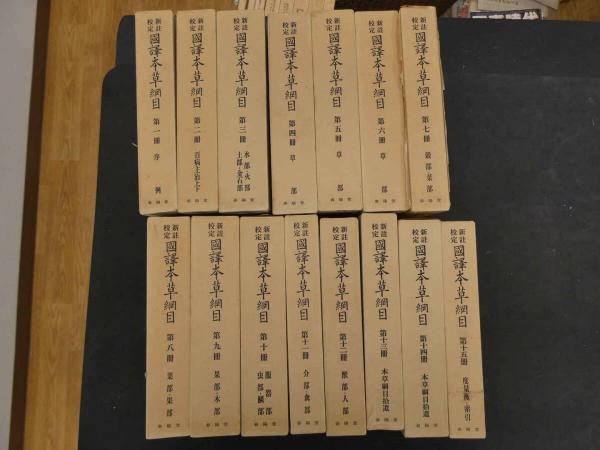 新註校定 國譯本草綱目 第一冊 序例 春陽堂
新註校定 國譯本草綱目 第二冊 百病主治上下 春陽堂
新註校定 國譯本草綱目 第三冊 水部・火部 土部・金石部 春陽堂
新註校定 國譯本草綱目 第四冊 草部 春陽堂
新註校定 國譯本草綱目 第五冊 草部 春陽堂
新註校定 國譯本草綱目 第六冊 草部 春陽堂
新註校定 國譯本草綱目 第七冊 穀部・菜部 春陽堂
新註校定 國譯本草綱目 第八冊 菜部果部 春陽堂
新註校定 國譯本草綱目 第九冊 果部・木部 春陽堂
新註校定 國譯本草綱目 第十冊 服器部 虫部鱗部 春陽堂
新註校定 國譯本草綱目 第十一冊 介部・禽部 春陽堂
新註校定 國譯本草綱目 第十二冊 獸部人部 春陽堂
新註校定 國譯本草綱目 第十三冊 本草綱目拾遺 春陽堂
新註校定 國譯本草綱目 第十四冊 本草綱目拾遺 春陽堂
新註校定 國譯本草綱目 第十五冊 度量衡・索引 春陽堂